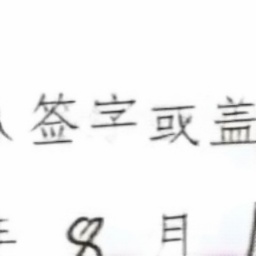 签字或盖
年 8 月